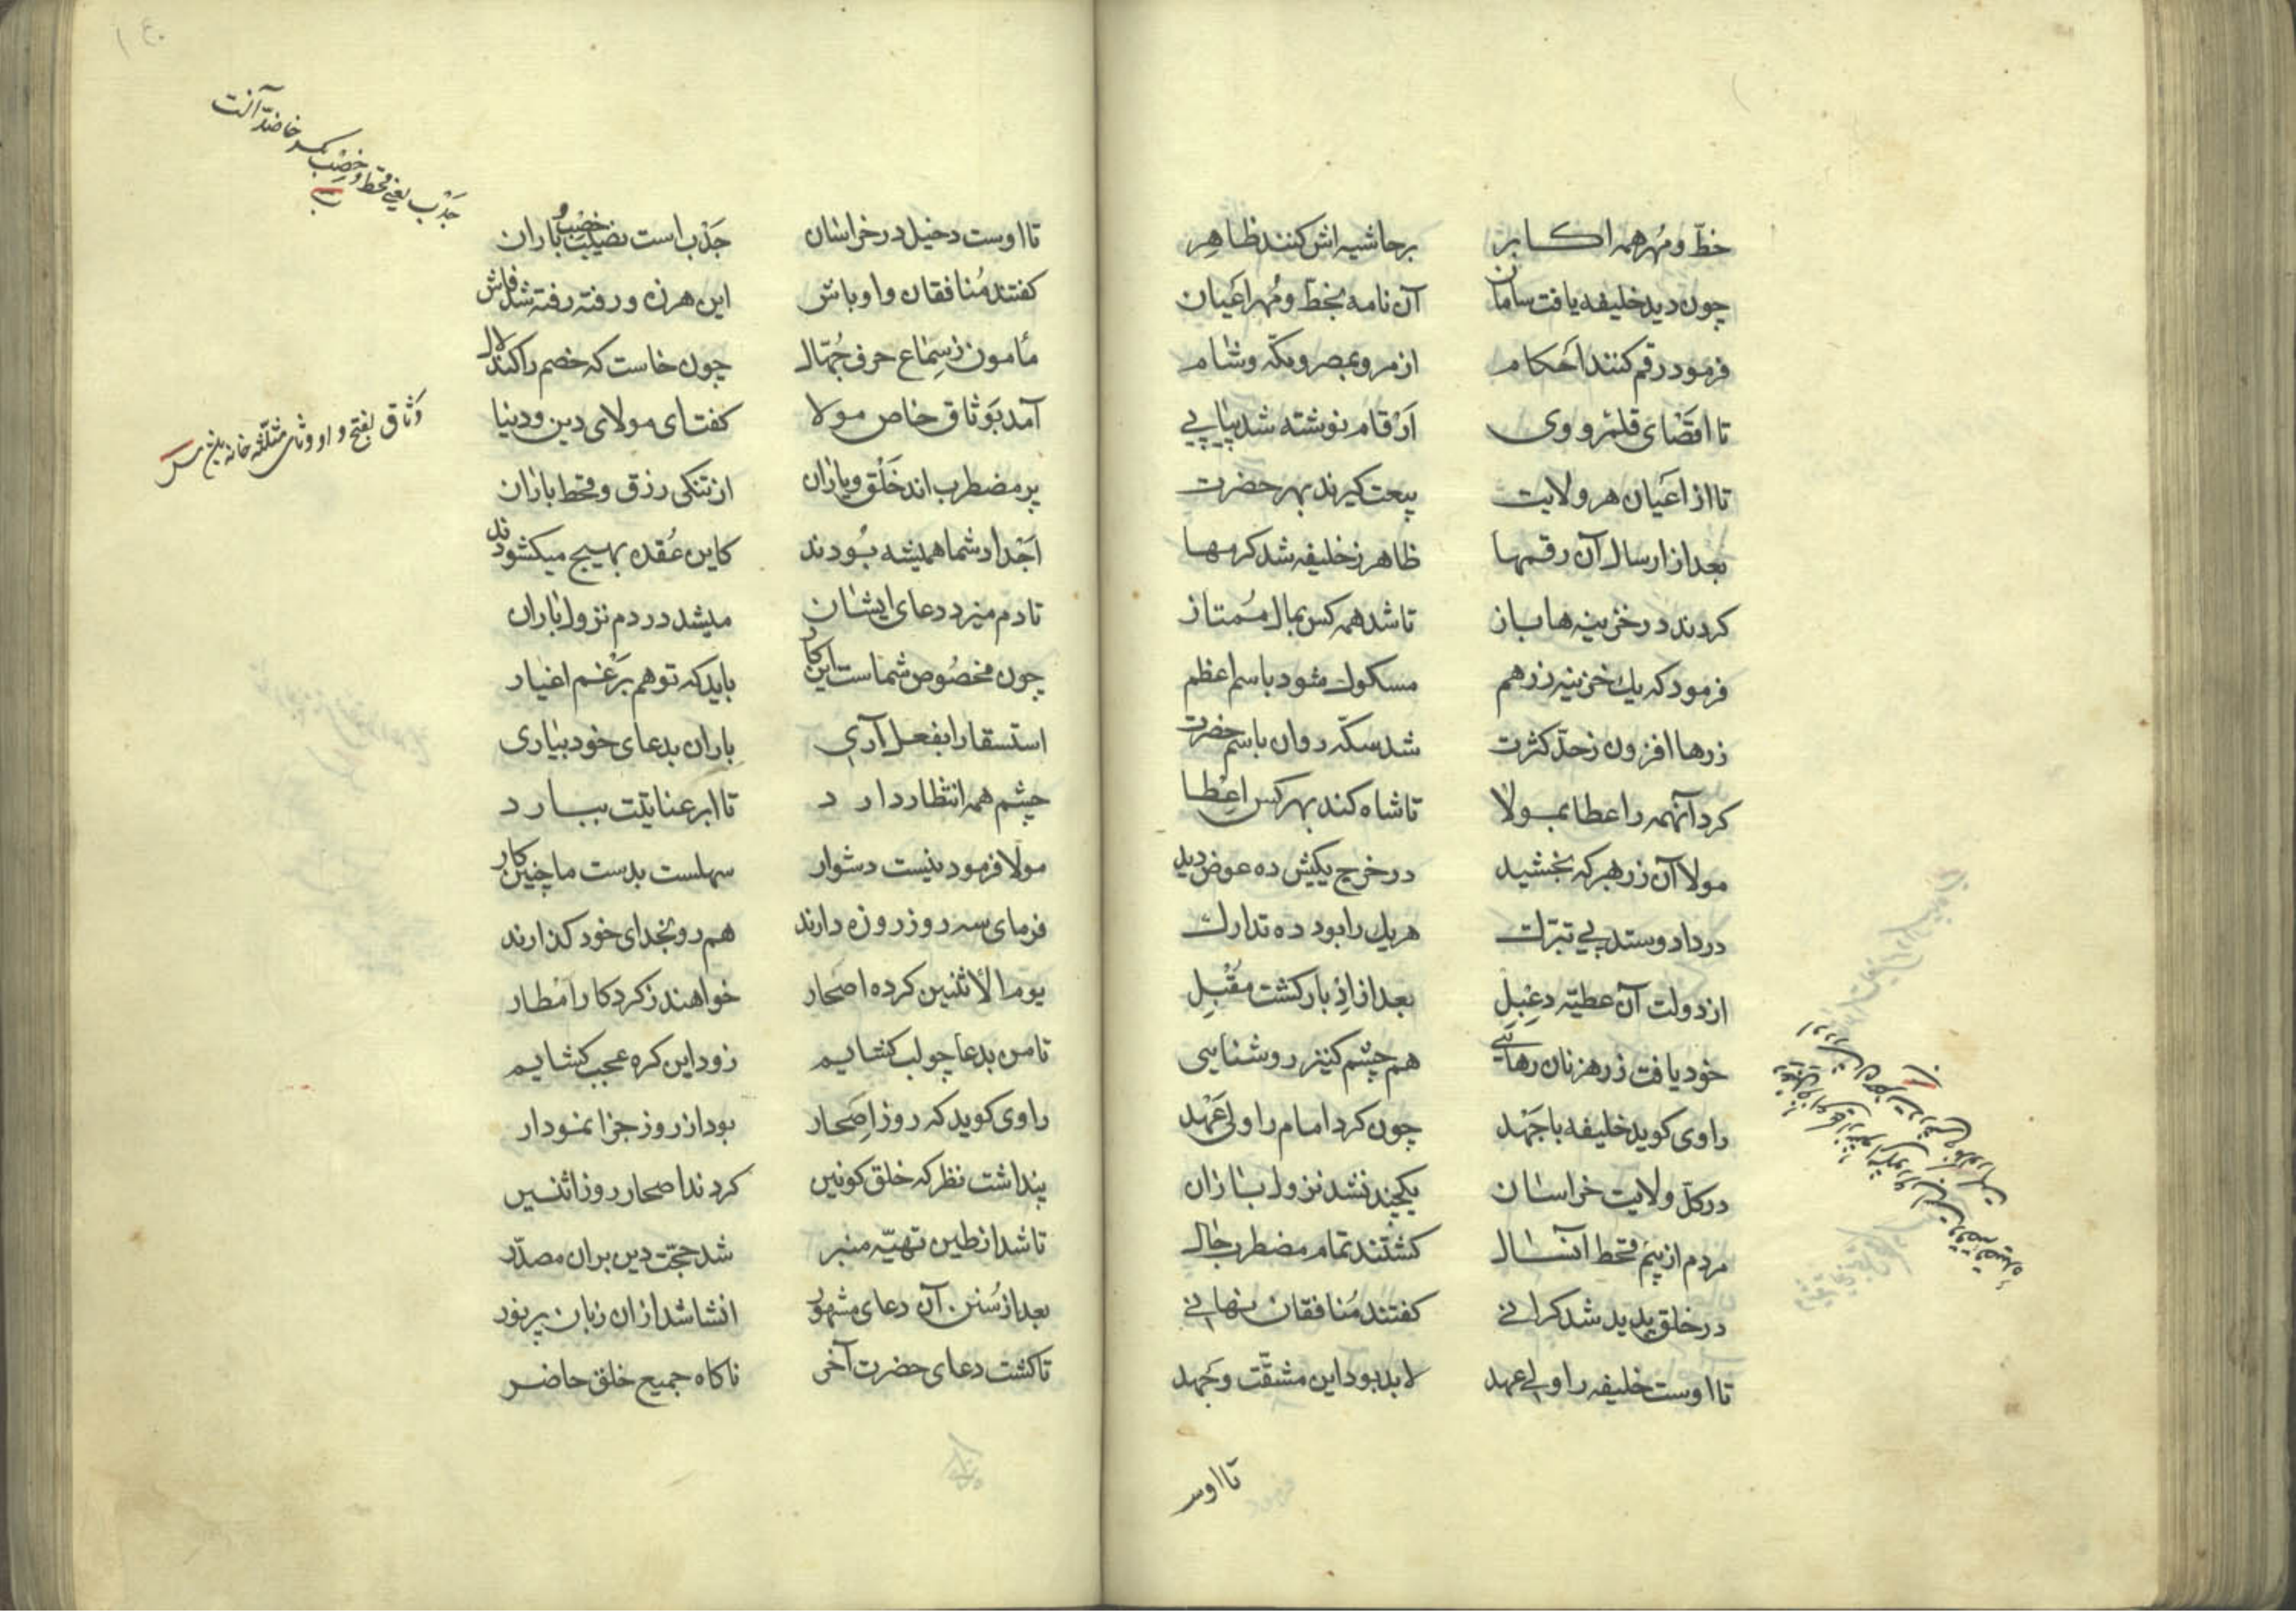 خطّ و مُهر همه اکابر برحاشیه اش کنند ظاهر
چون دید خلیفه یافت سامان آن نامه بخطّ و مُهر اعیان
فرمود رقم کنند احکام از مرو و بمصر و مکّه و شام
تا اقصَای قلمرو وی اَرْقام نوشته شد پیاپی
تا از اعیان هر ولایت بیعت کیرند بهر حضرت
بعد از ارسال آن رقمها ظاهر ز خلیفه شد کرمها
کردند در خزینه ها باز تا شد همه کس بمال مُمتاز
فرمود که یك خزینه زر هم مسکوك شود باسم اعظم
زرها افزون ز حدّ کثرت شد سکّه روان باسم حضرت
کرد آنهمه را عطا بمولا تا شاه کند بهر کس اعطا
مولا آن زر بهر که بخشید در خرج یکیش ده عوض دید
در داد و ستد پی تبرّك هریك را بود ده تدارك
از دولت آن عطیّه دِعْبِل بعد از اِدبار کشت مقْبِل
خود یافت ز رهزنان رهایی هم چشم کنیز روشنایی
راوی کوید خلیفه با جَهْد چون کرد امام را ولی عَهْد
در کلّ ولایت خراسان یکچند نشد نزول باران
مردم از بیم قحط آنسال کشتند تمام مضطرب حال
در خلق پدید شد کرانی کفتند مُنافقان نهانی
تا اوست خلیفه را ولی عهد لابد بود این مشقّت و جَهد
تا اوس
تا اوست دخیل در خراسان جَدْب است نصیب خصْب و باران
کفتند مُنافقان و اوباش این هرزه و رفته رفته شد فاش
مأمون ز سِمَاع حرف جُهّال چون خاست که خصم را کند لال
آمد بَوثاق خاص مولا کفت ای مولای دین و دنیا
پر مضطرب اند خَلْق و یاران از تنکی رزق و قحط باران
اَجْداد شما همیشه بُودند کاین عُقده بهیج میکشودند
تا دم میزد دعای ایشان میشد در دم نزول باران
چون مخصُوص شماست این کار باید که تو هم بَرغم اغیار
استسقا را بفعل آری باران بدعای خود بیاری
چشم همه انتظار دارد تا ابر عنایتت ببارد
مولا فرمود نیست دشوار سهلست بدست ما چنین کار
فرمای سه روز روزه دارند هم رو بخدای خود کذارند
یوم الاثنین کرده اصحار خواهند ز کردکار امْطار
تا من بدعا چو لب کشایم زود این کره عجب کشایم
راوی کوید که روز اِصَحار بود از روز جزا نمودار
پنداشت نظر که خلق کونین کردند اصحار روز اثنین
تا شد از طین تهیّه منبر شد حجّت دین بران مصدّر
بعد از سُنن آن دعای مشهور انشا شد ازان زبان پرنور
تا کشت دعای حضرت آخر ناکاه جمیع خلق حاضر
جَدْب یعنی قحط و خصْب بکسر خا ضدّ آنست
وَثاق بفتح واو و ثای مثلّثه خانه